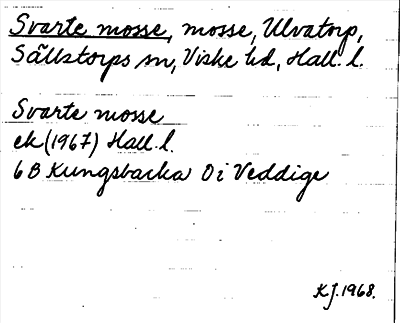 Svarte mosse, mosse, Ulvatorp,
Sällstorps sn, Viske hd, Hall. l.
Svarte mosse
ek (1967) Hall. l.
6 B Kungsbacka 0 i Veddige
KJ. 1968.